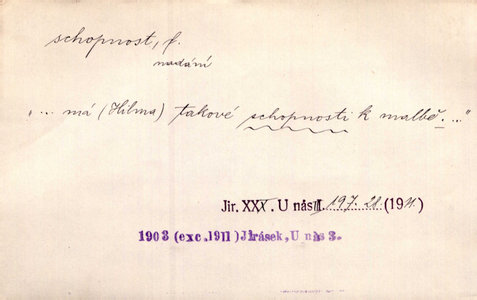 schopnost, f.
nadání
„... má (Hilma) takové schopnosti k malbě. ..."
Jir. XXX. U nás III. 197. 28. (1911.)
1903 (exc.1911) Jirásek, U nás 3.